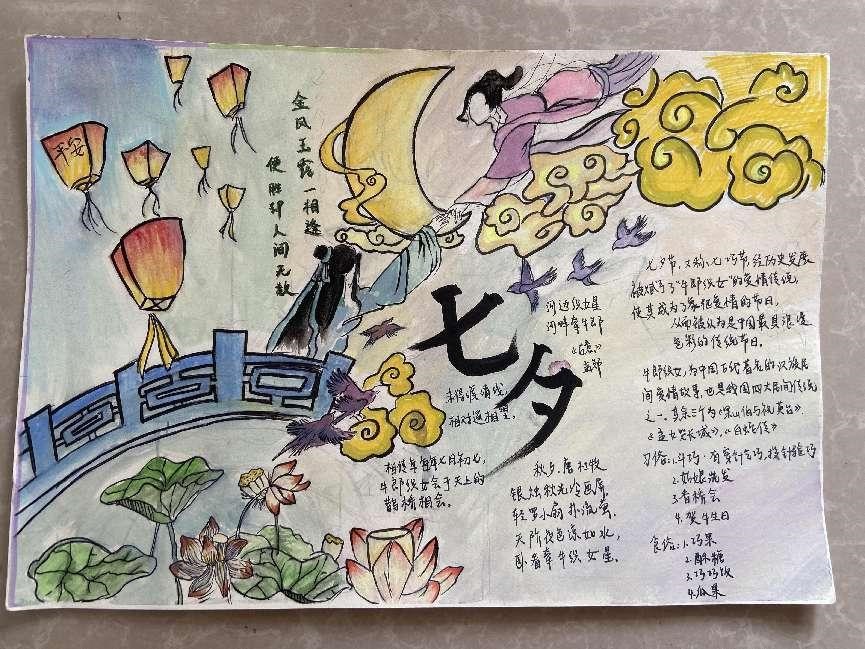 平安
金风玉露一相逢
便胜却人间无数
七夕
河边织女星
河畔牵牛郎
未得渡清浅
相对遥相望。
相传每年七月初七，
牛郎织女会于天上的
鹊桥相会。
秋夕·唐 杜牧
银烛秋光冷画屏
轻罗小扇扑流萤
天阶夜色凉如水，
卧看牵牛织女星。
七夕节，又称七巧节，经历史发展
被赋予了“牛郎织女”的爱情传统，
使其成为了象征爱情的节日，
从而被认为是中国最具浪漫
色彩的传统节日。
牛郎织女，为中国古代著名的汉族民
间爱情故事，也是我国四大民间传统
之一。其余三个为《梁山伯与祝英台》、
《孟姜女哭长城》、《白蛇传》
习俗：1.斗巧：有穿针乞巧，
2.妇嬢洗发
3.香桥会
4.贺牛生日
食俗：1.巧果
2.酥糖
3.巧巧饭
4.瓜果